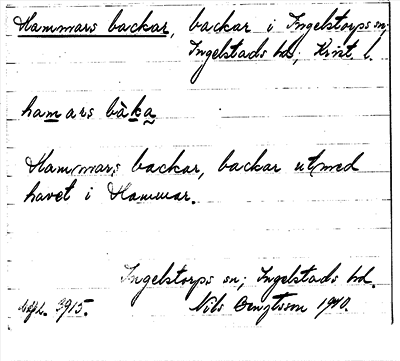 Hammars backar, backar i Ingelstorps sn;
Ingelstads hd, Krist. l.
hamars bàka
Hammars backar, backar utmed
havet i Hammar.
Ingelstorps sn; Ingelstads hd.
3915. Nils Bengtsson 1940.